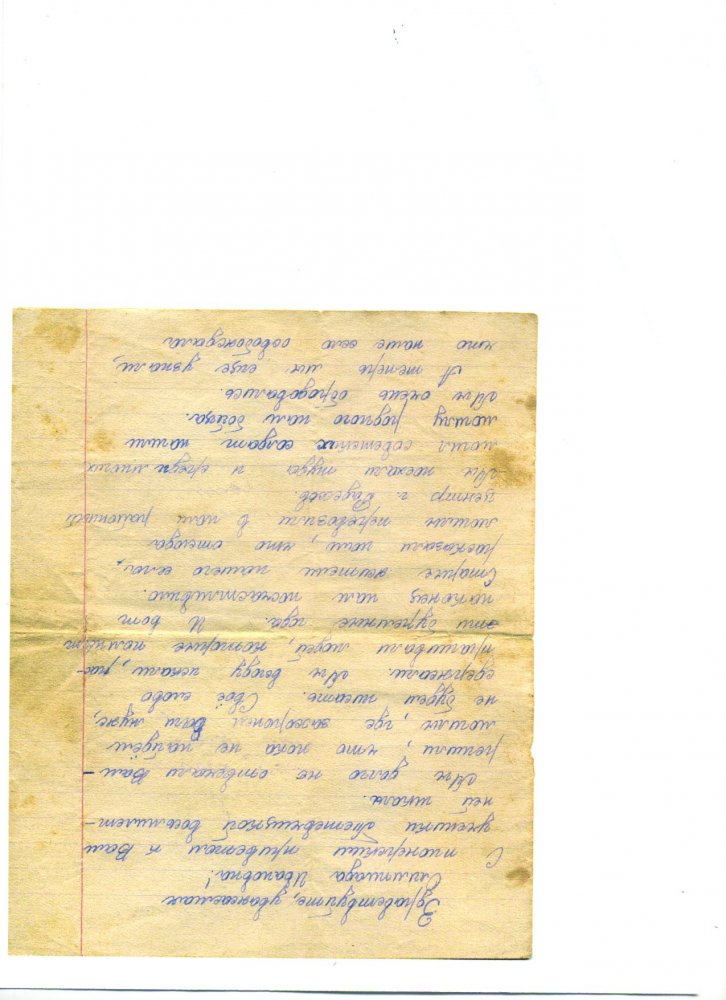 Здравствуйте, уважаемая
Олимпиада Ивановна!
С пионерским приветом к Вам
ученики восьмилет-
ней школы.
Мы долго не отвечали Вам –
решили, что пока не найдём
могилы, где захоронен Ваш муж,
не будем писать. Своё слово
сдержали. Мы всюду искали, рас-
прашивали людей, которые помнят
эти суремные года. И вот
наконец нам посчастливило.
Старые жители нашего села,
расказали нам, что отсюда
могилы перевозили в наш районный
центр г. Радехов.
Мы поехали туда и среди многих
могил советских солдат нашли
могилу родного нам бойца.
Мы очень обрадовались.
А теперь мы еще узнали,
что наше село освобождала